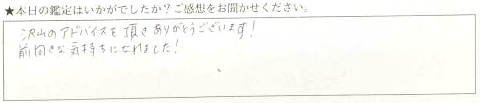 ★本日の鑑定はいかがでしたか？ご感想をお聞かせください。
沢山のアドバイスを頂きありがとうございます!
前向きな気持ちになれました!